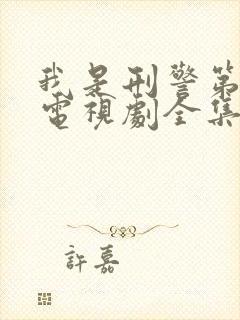 我是刑警第
電視劇全集
許嘉